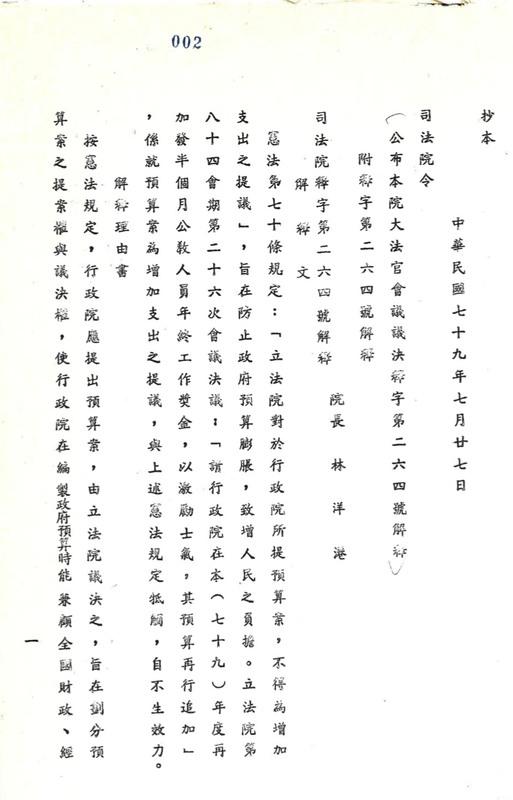 002
抄本
中華民國七十九年七月廿七日
司法院令
（公布本院大法官會議議決釋字第二六四號解釋）
附釋字第二六四號解釋
院長　林　洋　港
司法院釋字第二六四號解釋
解　釋　文
憲法第七十條規定：「立法院對於行政院所提預算案，不得為增加
支出之提議」，旨在防止政府預算膨脹，致增人民之負擔。立法院第
八十四會期第二十六次會議決議：「請行政院在本（七十九）年度再
加發半個月公教人員年終工作獎金，以激勵士氣，其預算再行追加」
，係就預算案為增加支出之提議，與上述憲法規定牴觸，自不生效力。
解釋理由書
按憲法規定，行政院應提出預算案，由立法院議決之，旨在劃分預
算案之提案權與議決權，使行政院在編製政府預算時能兼顧全國財政、經
一